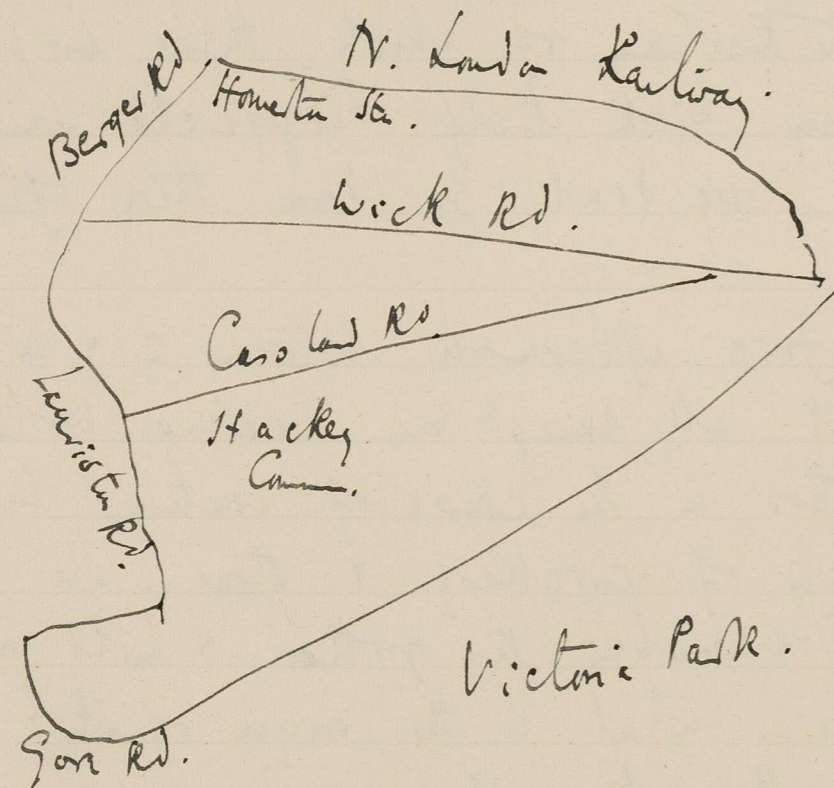 N. London Railway.
Berger Rd
Homerton Stn.
Wick Rd.
Cassland Rd.
Lauriston Rd.
Hackney
Common.
Victoria Park.
Gore Rd.